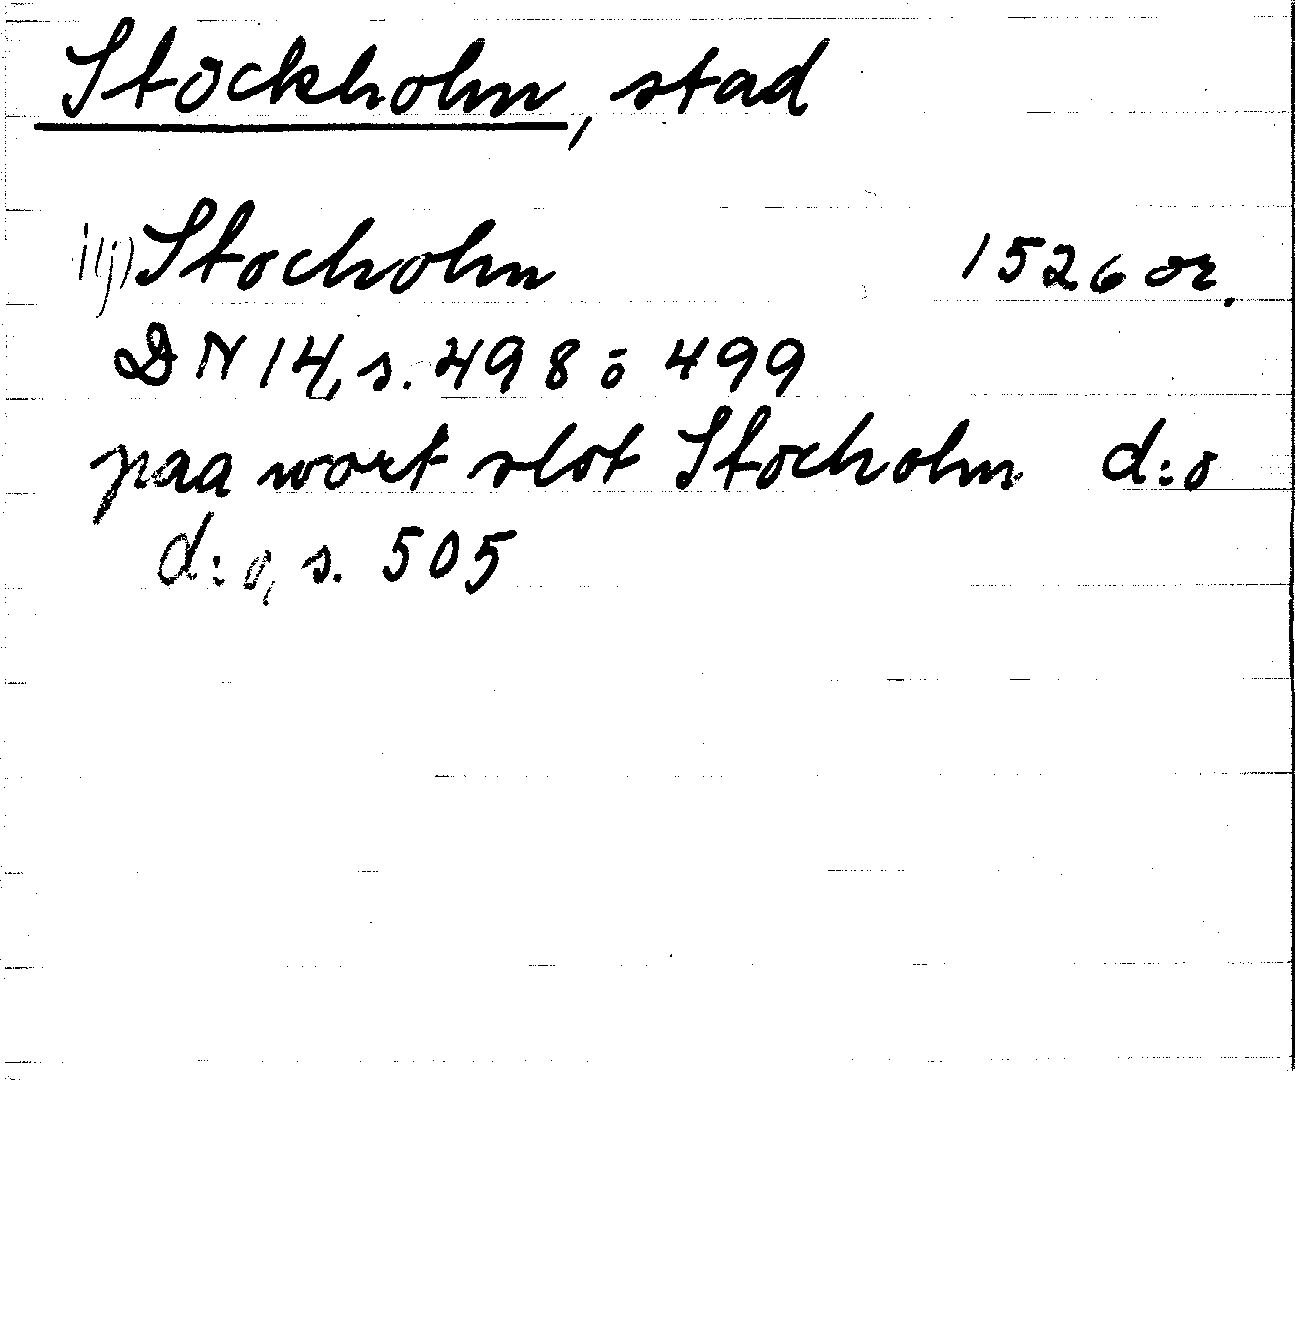 Stockholm, stad
i Stocholm 1526 or.
DN 14, s. 498 o 499
paa wort slot Stocholm d:o
d:o, s. 505